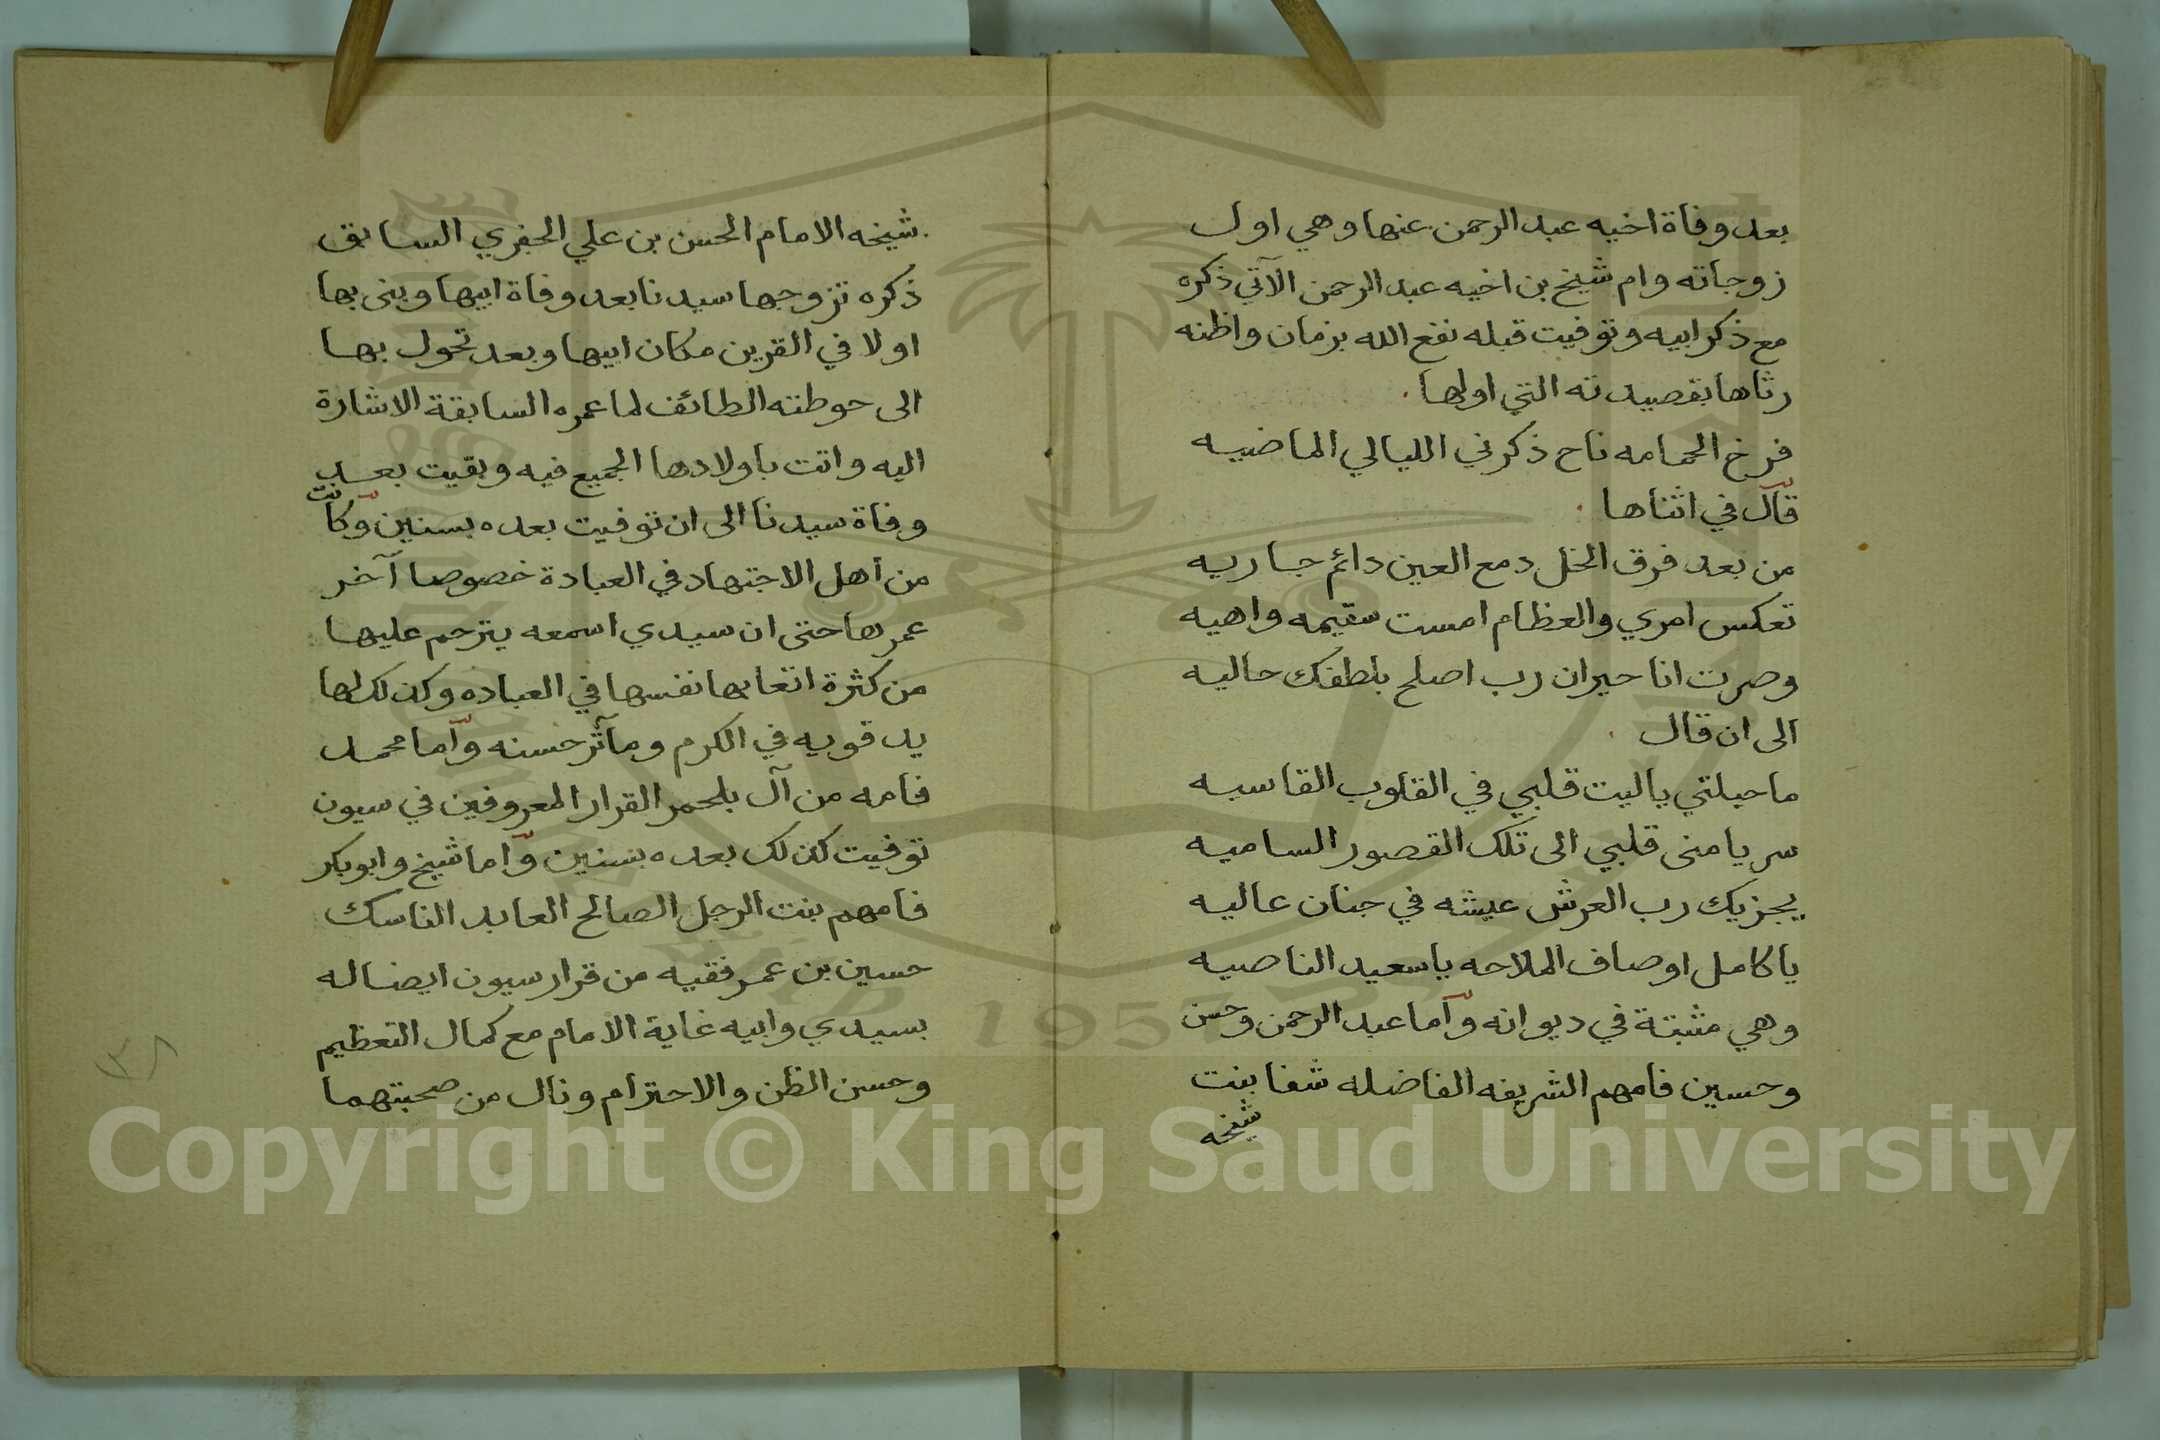 بعد وفاة اخيه عبد الرحمن عنها وهي اول
زوجاته وام شيخ بن اخيه عبد الرحمن الآتي ذكره
مع ذكر ابيه وتوفيت قبله نفع الله بزمان واظنه
رثاها بقصيدته التي اولها
فرخ الحمامه ناح ذكرني الليالي الماضيه
قال في اثناها
من بعد فرق الخل دمع العين دائم جاريه
تعكس امري والعظام امست سقيمه واهيه
وصرت انا حيران رب اصلح بلطفك حاليه
الى ان قال
ما حيلتي ياليت قلبي في القلوب القاسيه
سر يا منى قلبي الى تلك القصور الساميه
يجزيك رب العرش عيشه في جنان عاليه
يا كامل اوصاف الملاحه يا سعيد الناصيه
وهي مثبتة في ديوانه واما عبد الرحمن وحسن
وحسين فامهم الشريفه الفاضله شفا بنت
شيخه
شيخه الامام الحسن بن علي الجفري السابق
ذكره تزوجها سيدنا بعد وفاة ابيها وبنى بها
اولا في القرين مكان ابيها وبعد تحول بها
الى حوطته الطائف لما عمره السابقة الاشارة
اليه واتت باولادها الجميع فيه وبقيت بعد
وفاة سيدنا الى ان توفيت بعده بسنين وكانت
من اهل الاجتهاد في العبادة خصوصا آخر
عمرها حتى ان سيدي اسمعه يترحم عليها
من كثرة اتعابها نفسها في العباده وكذلك لها
يد قويه في الكرم ومآثر حسنه واما محمد
فامه من آل بلحمر القرار المعروفين في سيون
توفيت كذلك بعده بسنين واما شيخ وابوبكر
فامهم بنت الرجل الصالح العابد الناسك
حسين بن عمر فقيه من قرار سيون ايضا له
بسيدي وابيه غاية الامام مع كمال التعظيم
وحسن الظن والاحترام ونال من صحبتهما
٣٨
Copyright © King Saud University
1957